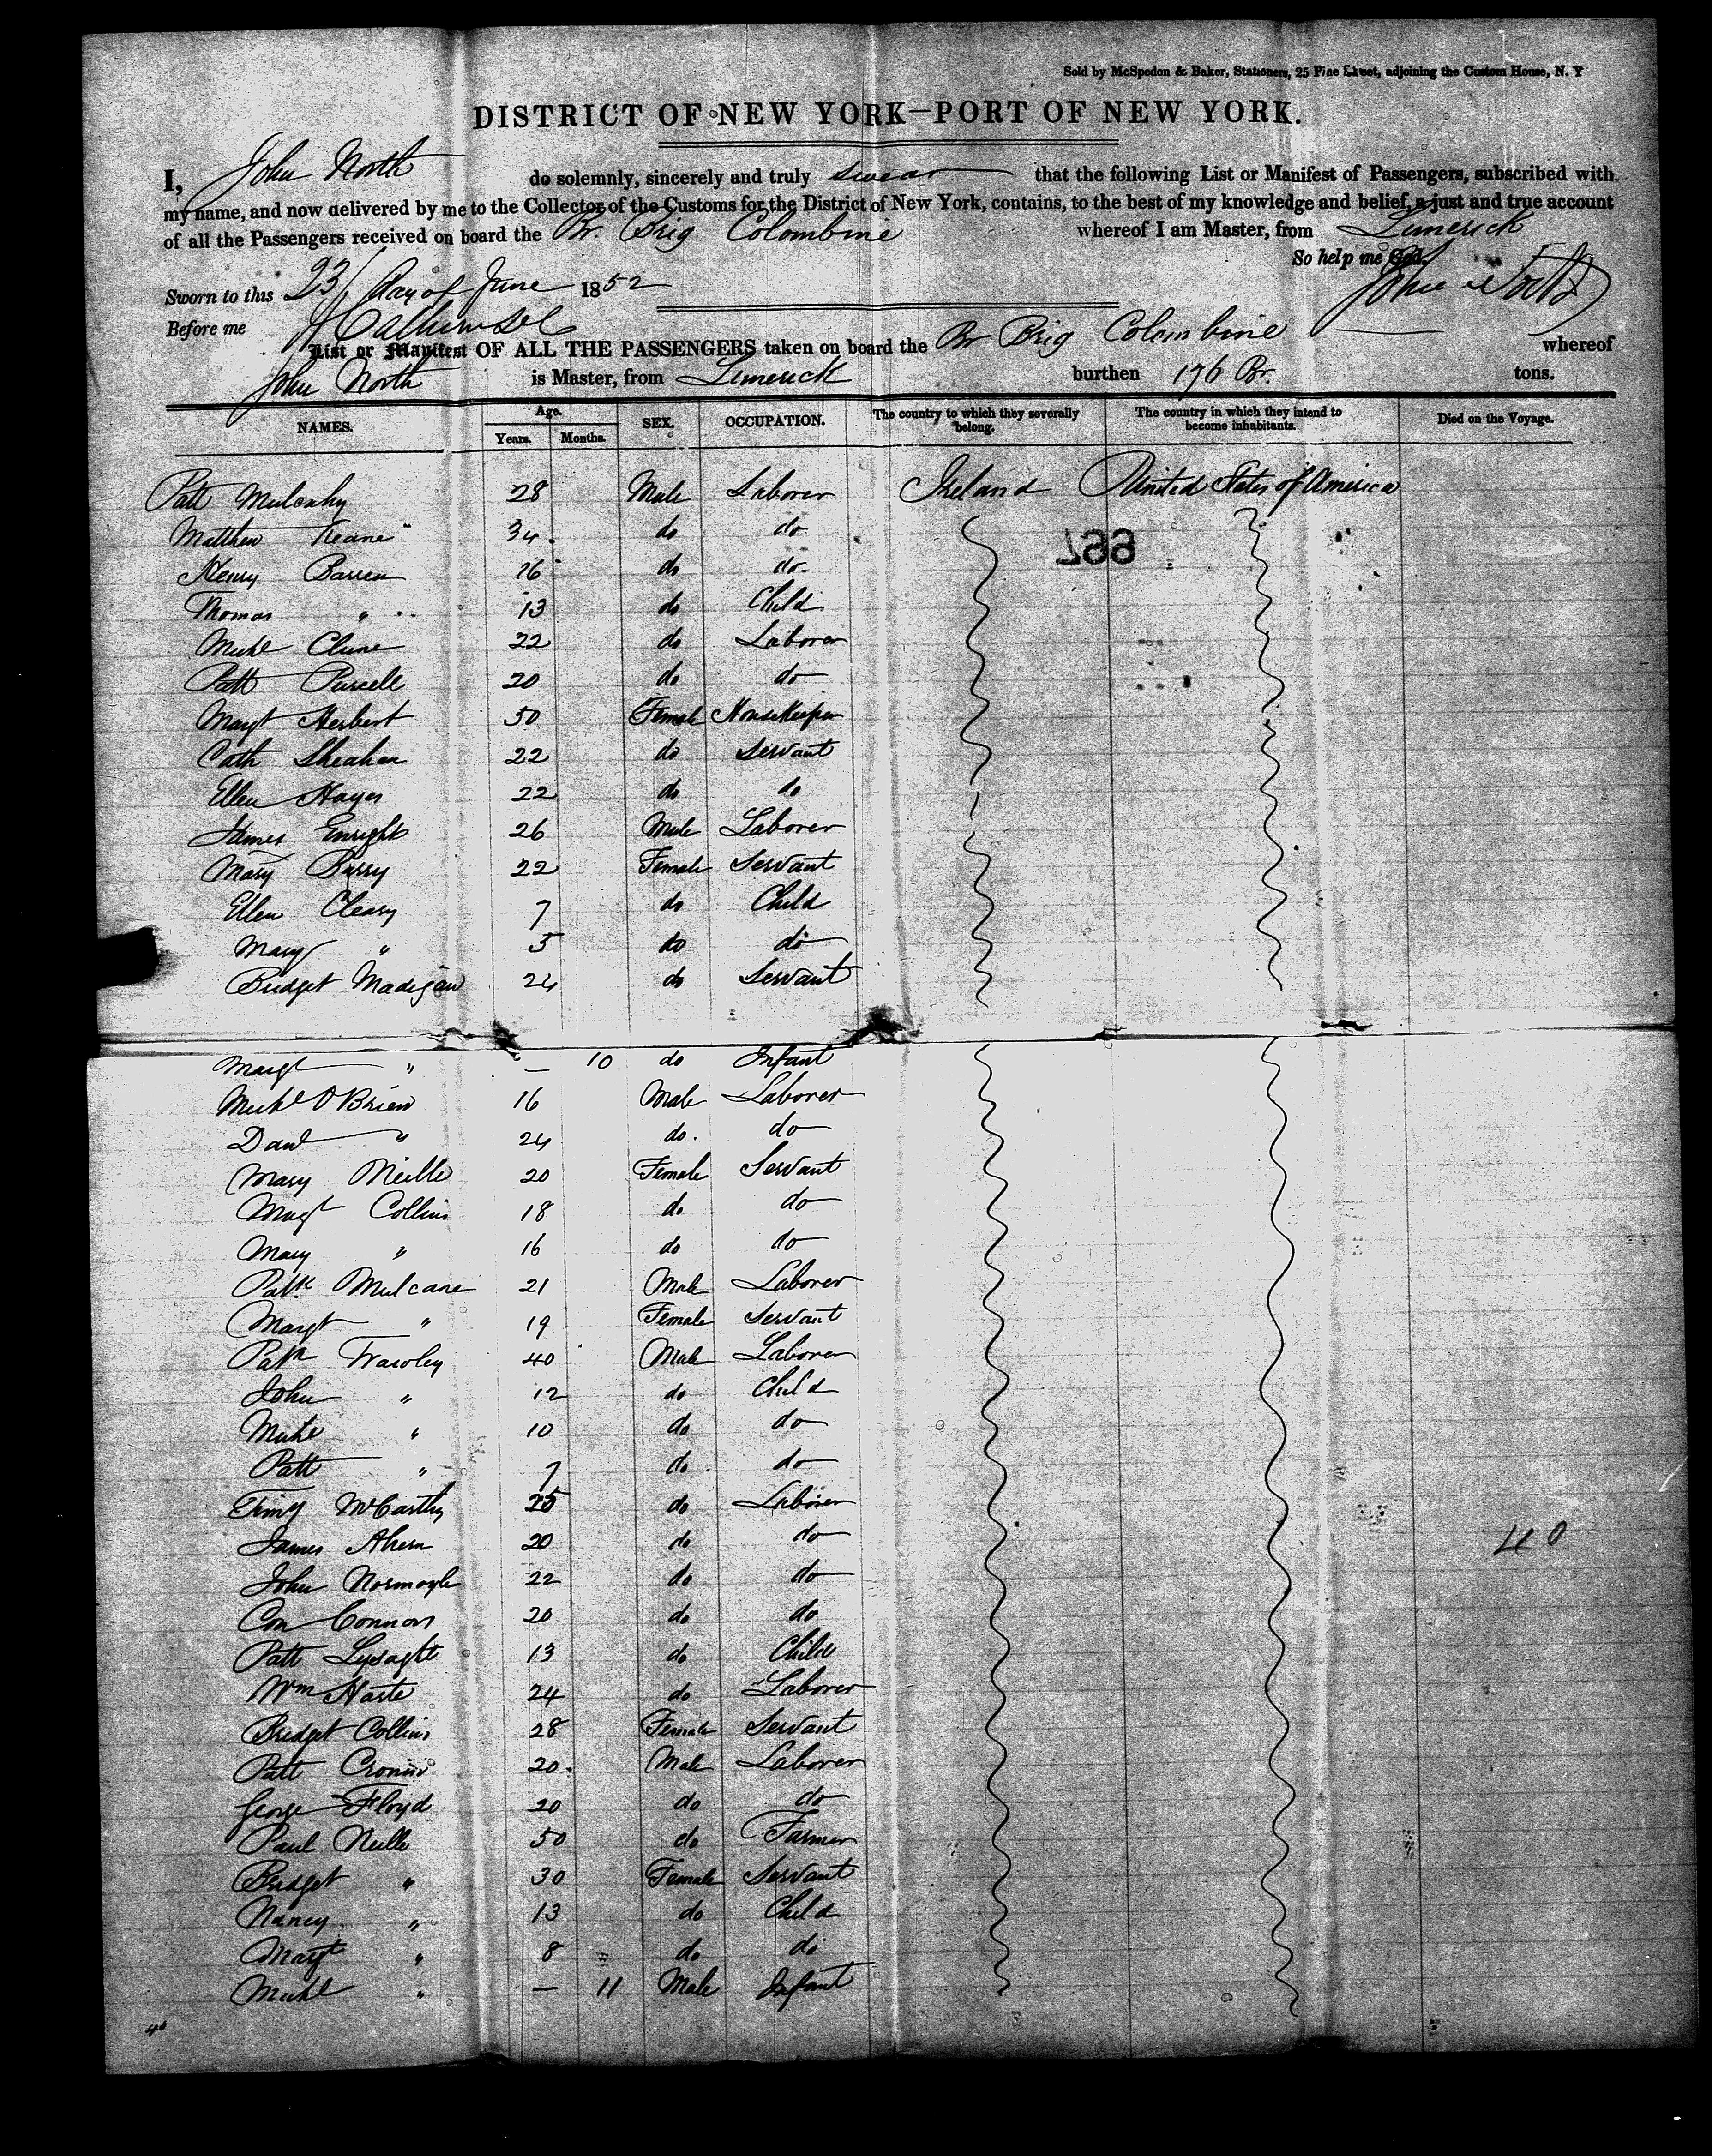 Sold by McSpedon & Baker, Stationers, 25 Pine Street, adjoining the Custom House, N. Y
DISTRICT OF NEW YORK—PORT OF NEW YORK.
I, John North do solemnly, sincerely and truly swear that the following List or Manifest of Passengers, subscribed with
my name, and now delivered by me to the Collector of the Customs for the District of New York, contains, to the best of my knowledge and belief, a just and true account
of all the Passengers received on board the Br. Brig Colombine whereof I am Master, from Limerick
So help me God.
Sworn to this 23/ day of June 1852 John North
Before me
List or Manifest OF ALL THE PASSENGERS taken on board the Br Brig Colombine whereof
John North is Master, from Limerick burthen 176 Br. tons.
NAMES. Age. Years. Months. SEX. OCCUPATION. The country to which they severally belong. The country in which they intend to become inhabitants. Died on the Voyage.
Patt Mulcahy 28 Male Laborer Ireland United States of America
Matthew Keane " 34 do do
667
Henry Barren 16 do do
Thomas " 13 do Child
Michl Clune 22 do Laborer
Patt Purcell 20 do do
Margt Herbert 50 Female Housekeeper
Cath Sheahan 22 do Servant
Ellen Hayes 22 do do
James Enright 26 Male Laborer
Mary Barry 22 Female Servant
Ellen Cleary 7 do Child
Mary " 5 do do
Bridget Madigan 24 do Servant
Margt " — 10 do Infant
Michl O'Brien 16 Male Laborer
Danl " 24 do. do
Mary Neille 20 Female Servant
Margt Collins 18 do do
Mary " 16 do do
Patk Mulcare 21 Male Laborer
Margt " 19 Female Servant
Patk Frawley 40 Male Laborer
John " 12 do Child
Michl " 10 do do
Patt " 7 do do
Timy McCarthy 25 do Laborer
James Ahern 20 do do
40
John Normoyle 22 do do
Con Connors 20 do do
Patt Lysaght 13 do Child
Wm Harte 24 do Laborer
Bridget Collins 28 Female Servant
Patt Cronin 20 Male Laborer
George Floyd 20 do do
Paul Neille 50 do Farmer
Bridget " 30 Female Servant
Nancy " 13 do Child
Margt " 8 do do
Michl " — 11 Male Infant
40